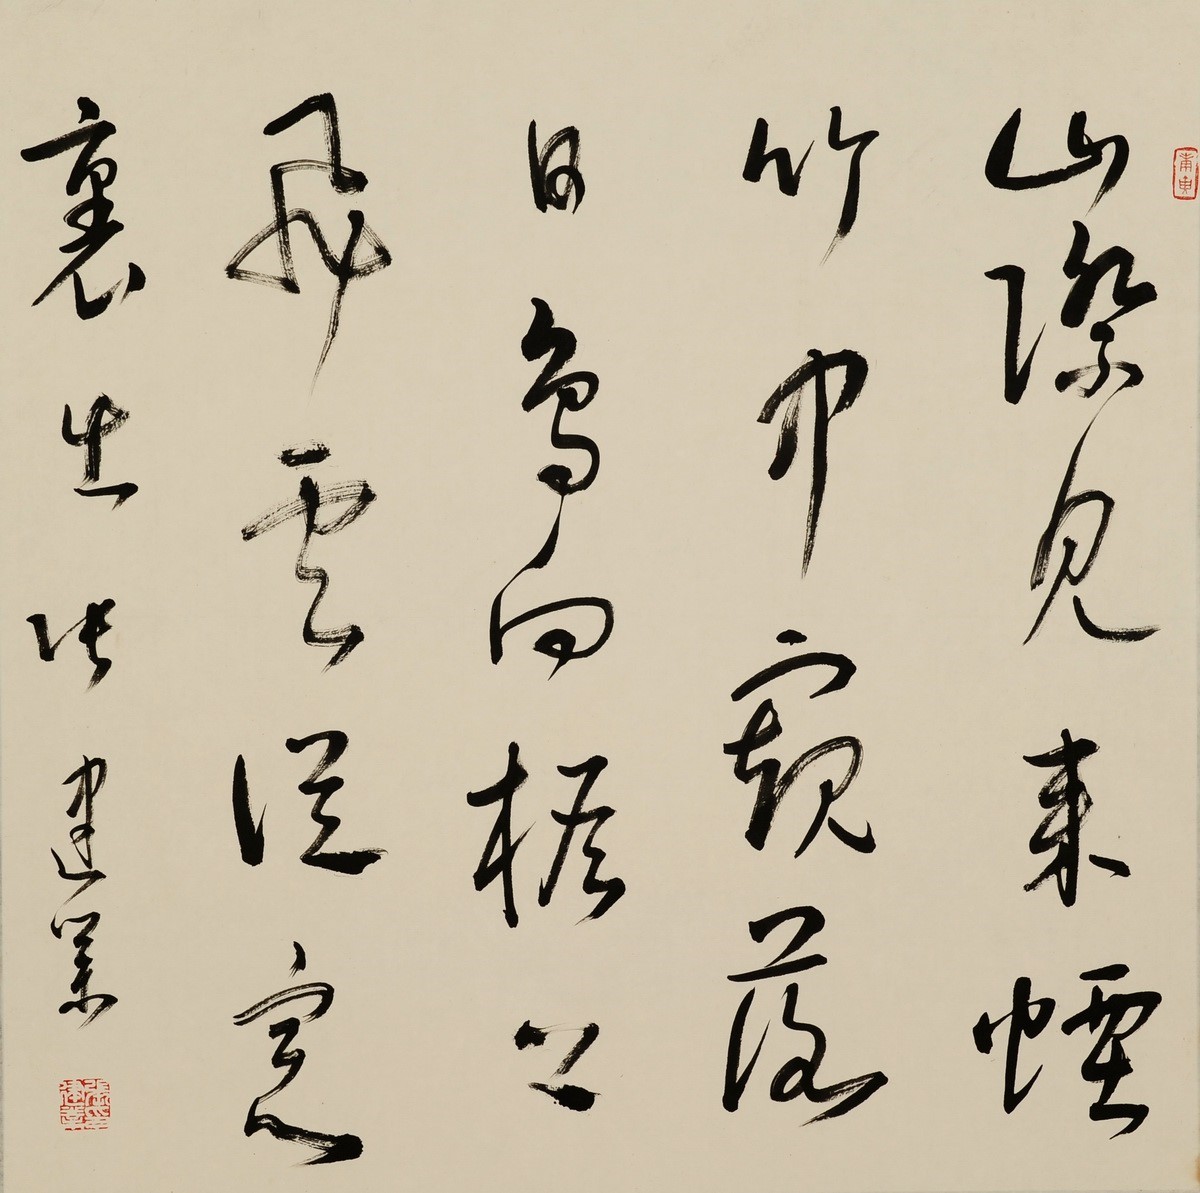 山際見來煙
竹中窺落
日鳥向檐上
飛雲從窗
裏出 張建業